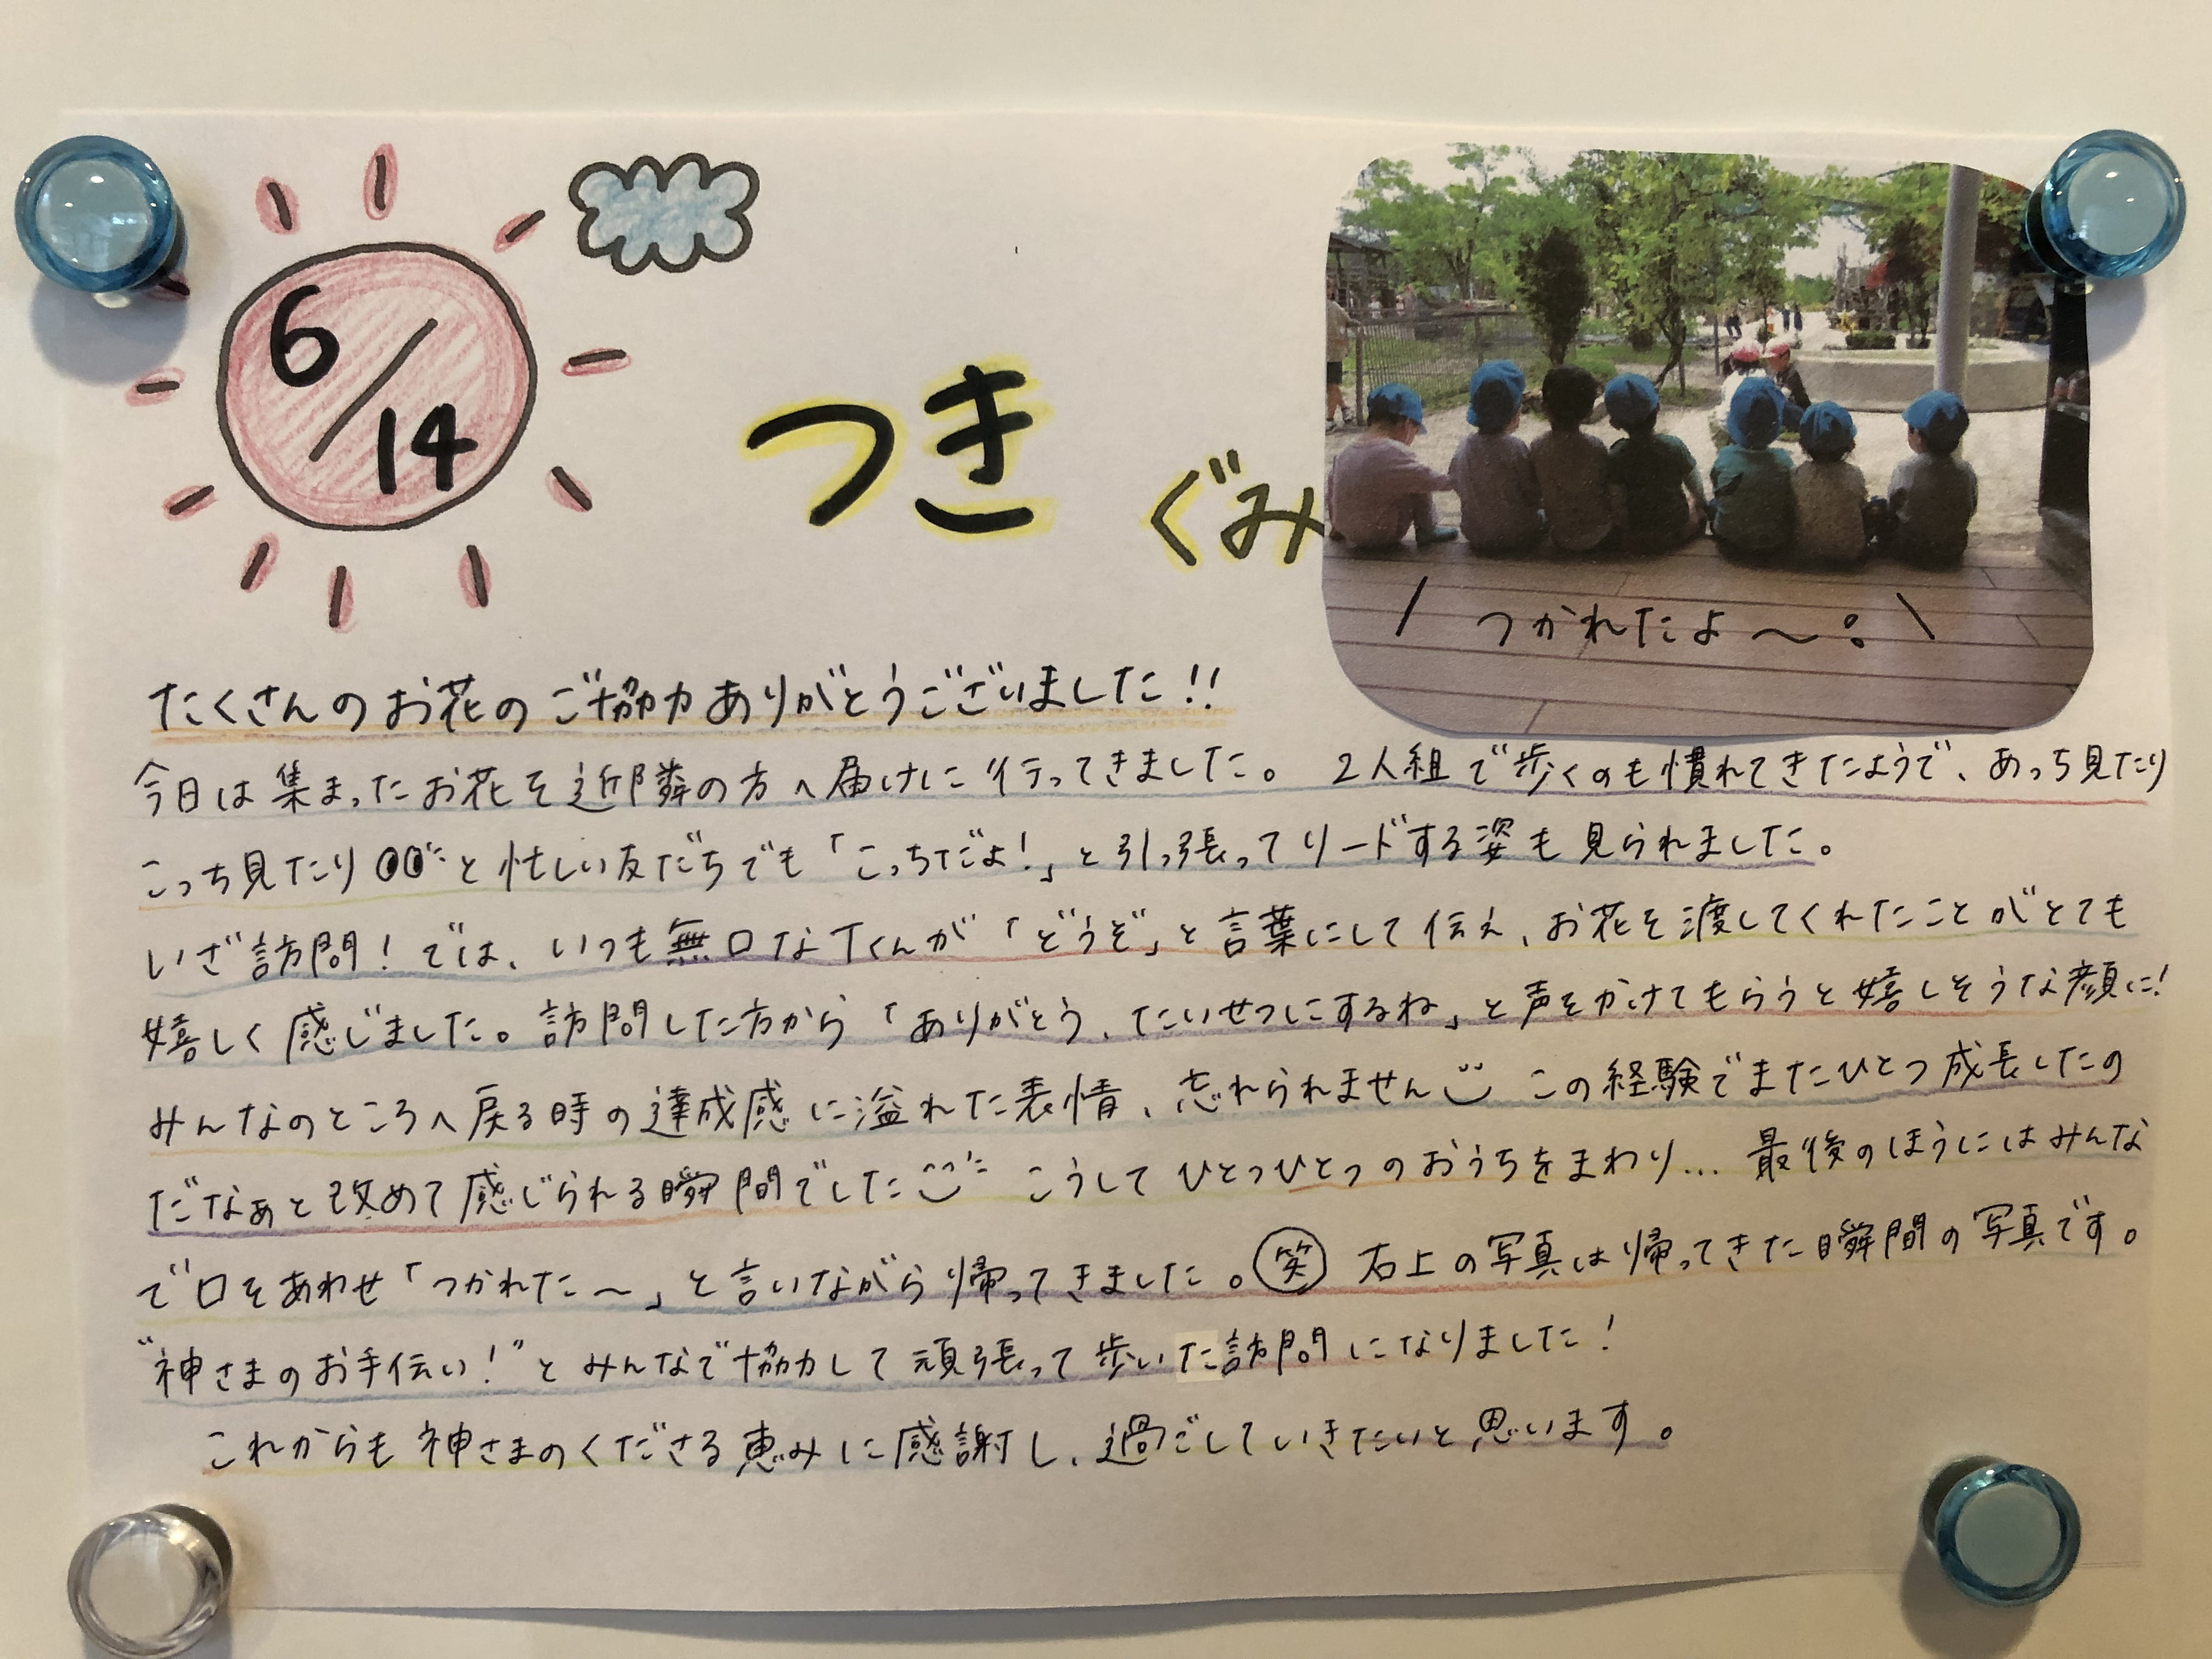 6/14
つき ぐみ
\ つかれたよ〜 /
たくさんのお花のご協力ありがとうございました!!
今日は集まったお花を近隣の方へ届けに行ってきました。 2人組で歩くのも慣れてきたようで、あっち見たり
こっち見たり と忙しい友だちでも「こっちだよ!」と引っ張ってリードする姿も見られました。
いざ訪問!では、いつも無口なTくんが「どうぞ」と言葉にして伝え、お花を渡してくれたことがとても
嬉しく感じました。訪問した方から「ありがとう、たいせつにするね」と声をかけてもらうと嬉しそうな顔に!
みんなのところへ戻る時の達成感に溢れた表情、忘れられません この経験でまたひとつ成長したの
だなぁと改めて感じられる瞬間でした こうしてひとつひとつのおうちをまわり… 最後のほうにはみんな
で口をあわせ「つかれた〜」と言いながら帰ってきました。笑 右上の写真は帰ってきた瞬間の写真です。
"神さまのお手伝い!"とみんなで協力して頑張って歩いた訪問になりました!
これからも神さまのくださる恵みに感謝し、過ごしていきたいと思います。